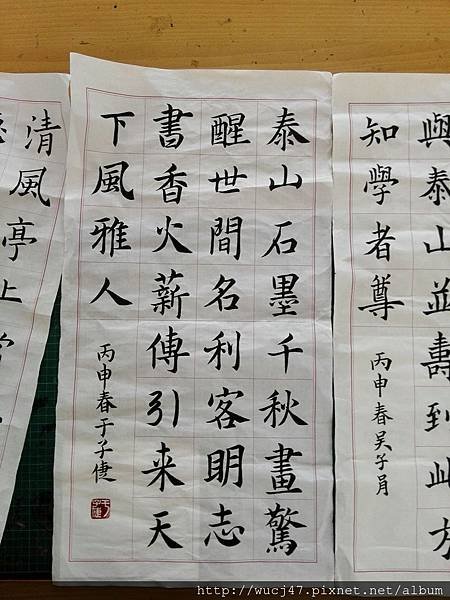 與泰山並壽到此方
知學者尊
丙申春吴子
泰山石墨千秋畫驚
醒世間名利客明志
書香火薪傳引来天
下風雅人
丙申春于子倢
清風亭上
http://wucj47.pixnet.net/album